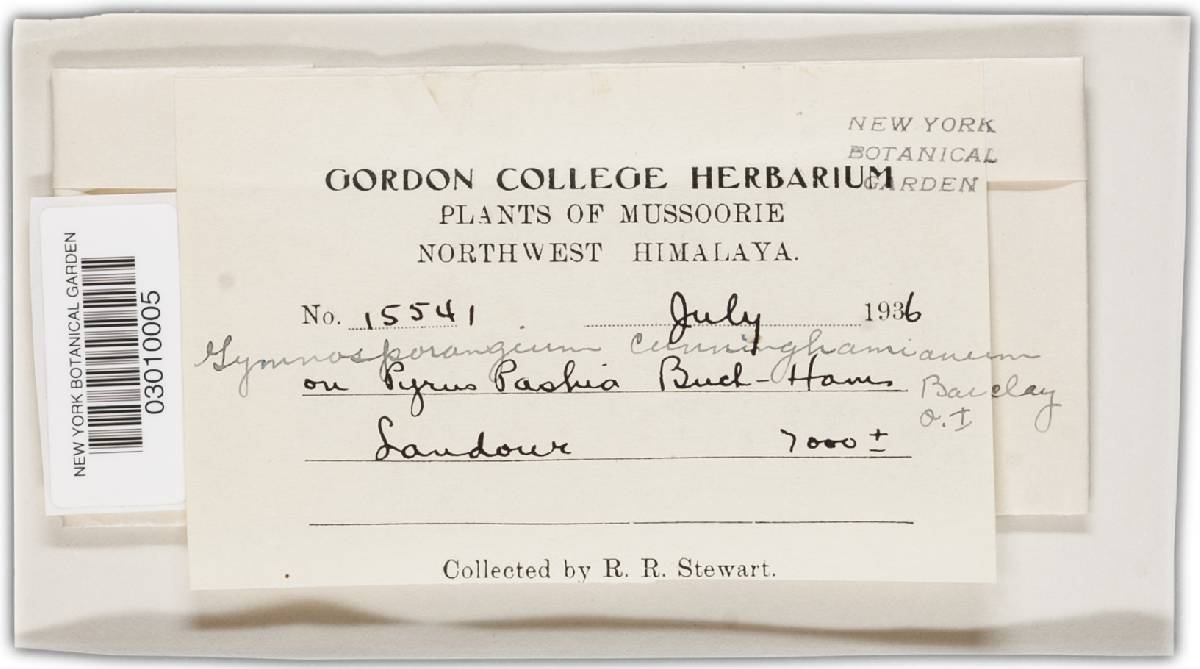 NEW YORK
BOTANICAL
GARDEN
GORDON COLLEGE HERBARIUM
PLANTS OF MUSSOORIE
NORTHWEST HIMALAYA.
No. 15541 July 1936
Gymnosporangium Cunninghamianum
Barclay
O.I
on Pyrus Pashia Buch-Ham
Landour 7000 ±
Collected by R. R. Stewart.
NEW YORK BOTANICAL GARDEN
03010005